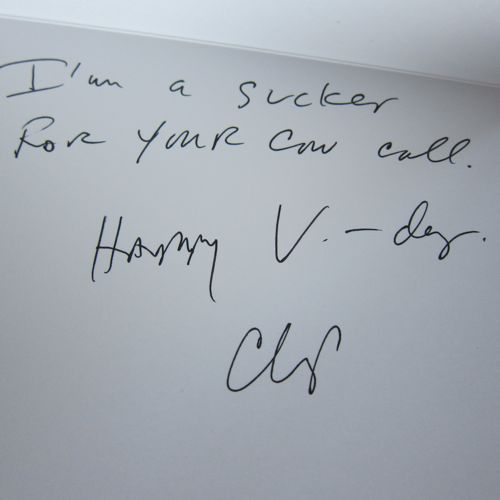 I'm a sucker
FOR YOUR COW call.
HAPPY V.-day.